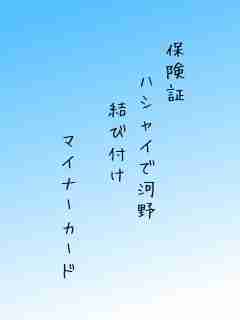 保険証
ハシャイで河野
結び付け
マイナーカード